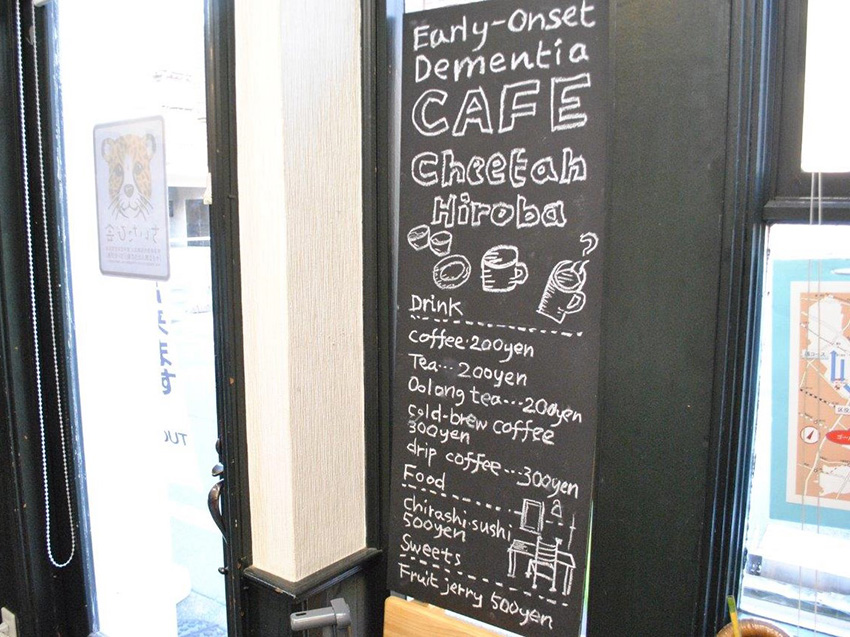 Early-Onset
Dementia
CAFE
Cheetah
Hiroba
Drink
coffee・200yen
Tea… 200yen
Oolong tea…200yen
cold-brew coffee
300yen
drip coffee…300yen
Food
chirashi.sushi
500yen
Sweets
Fruit jerry 500yen
来ます